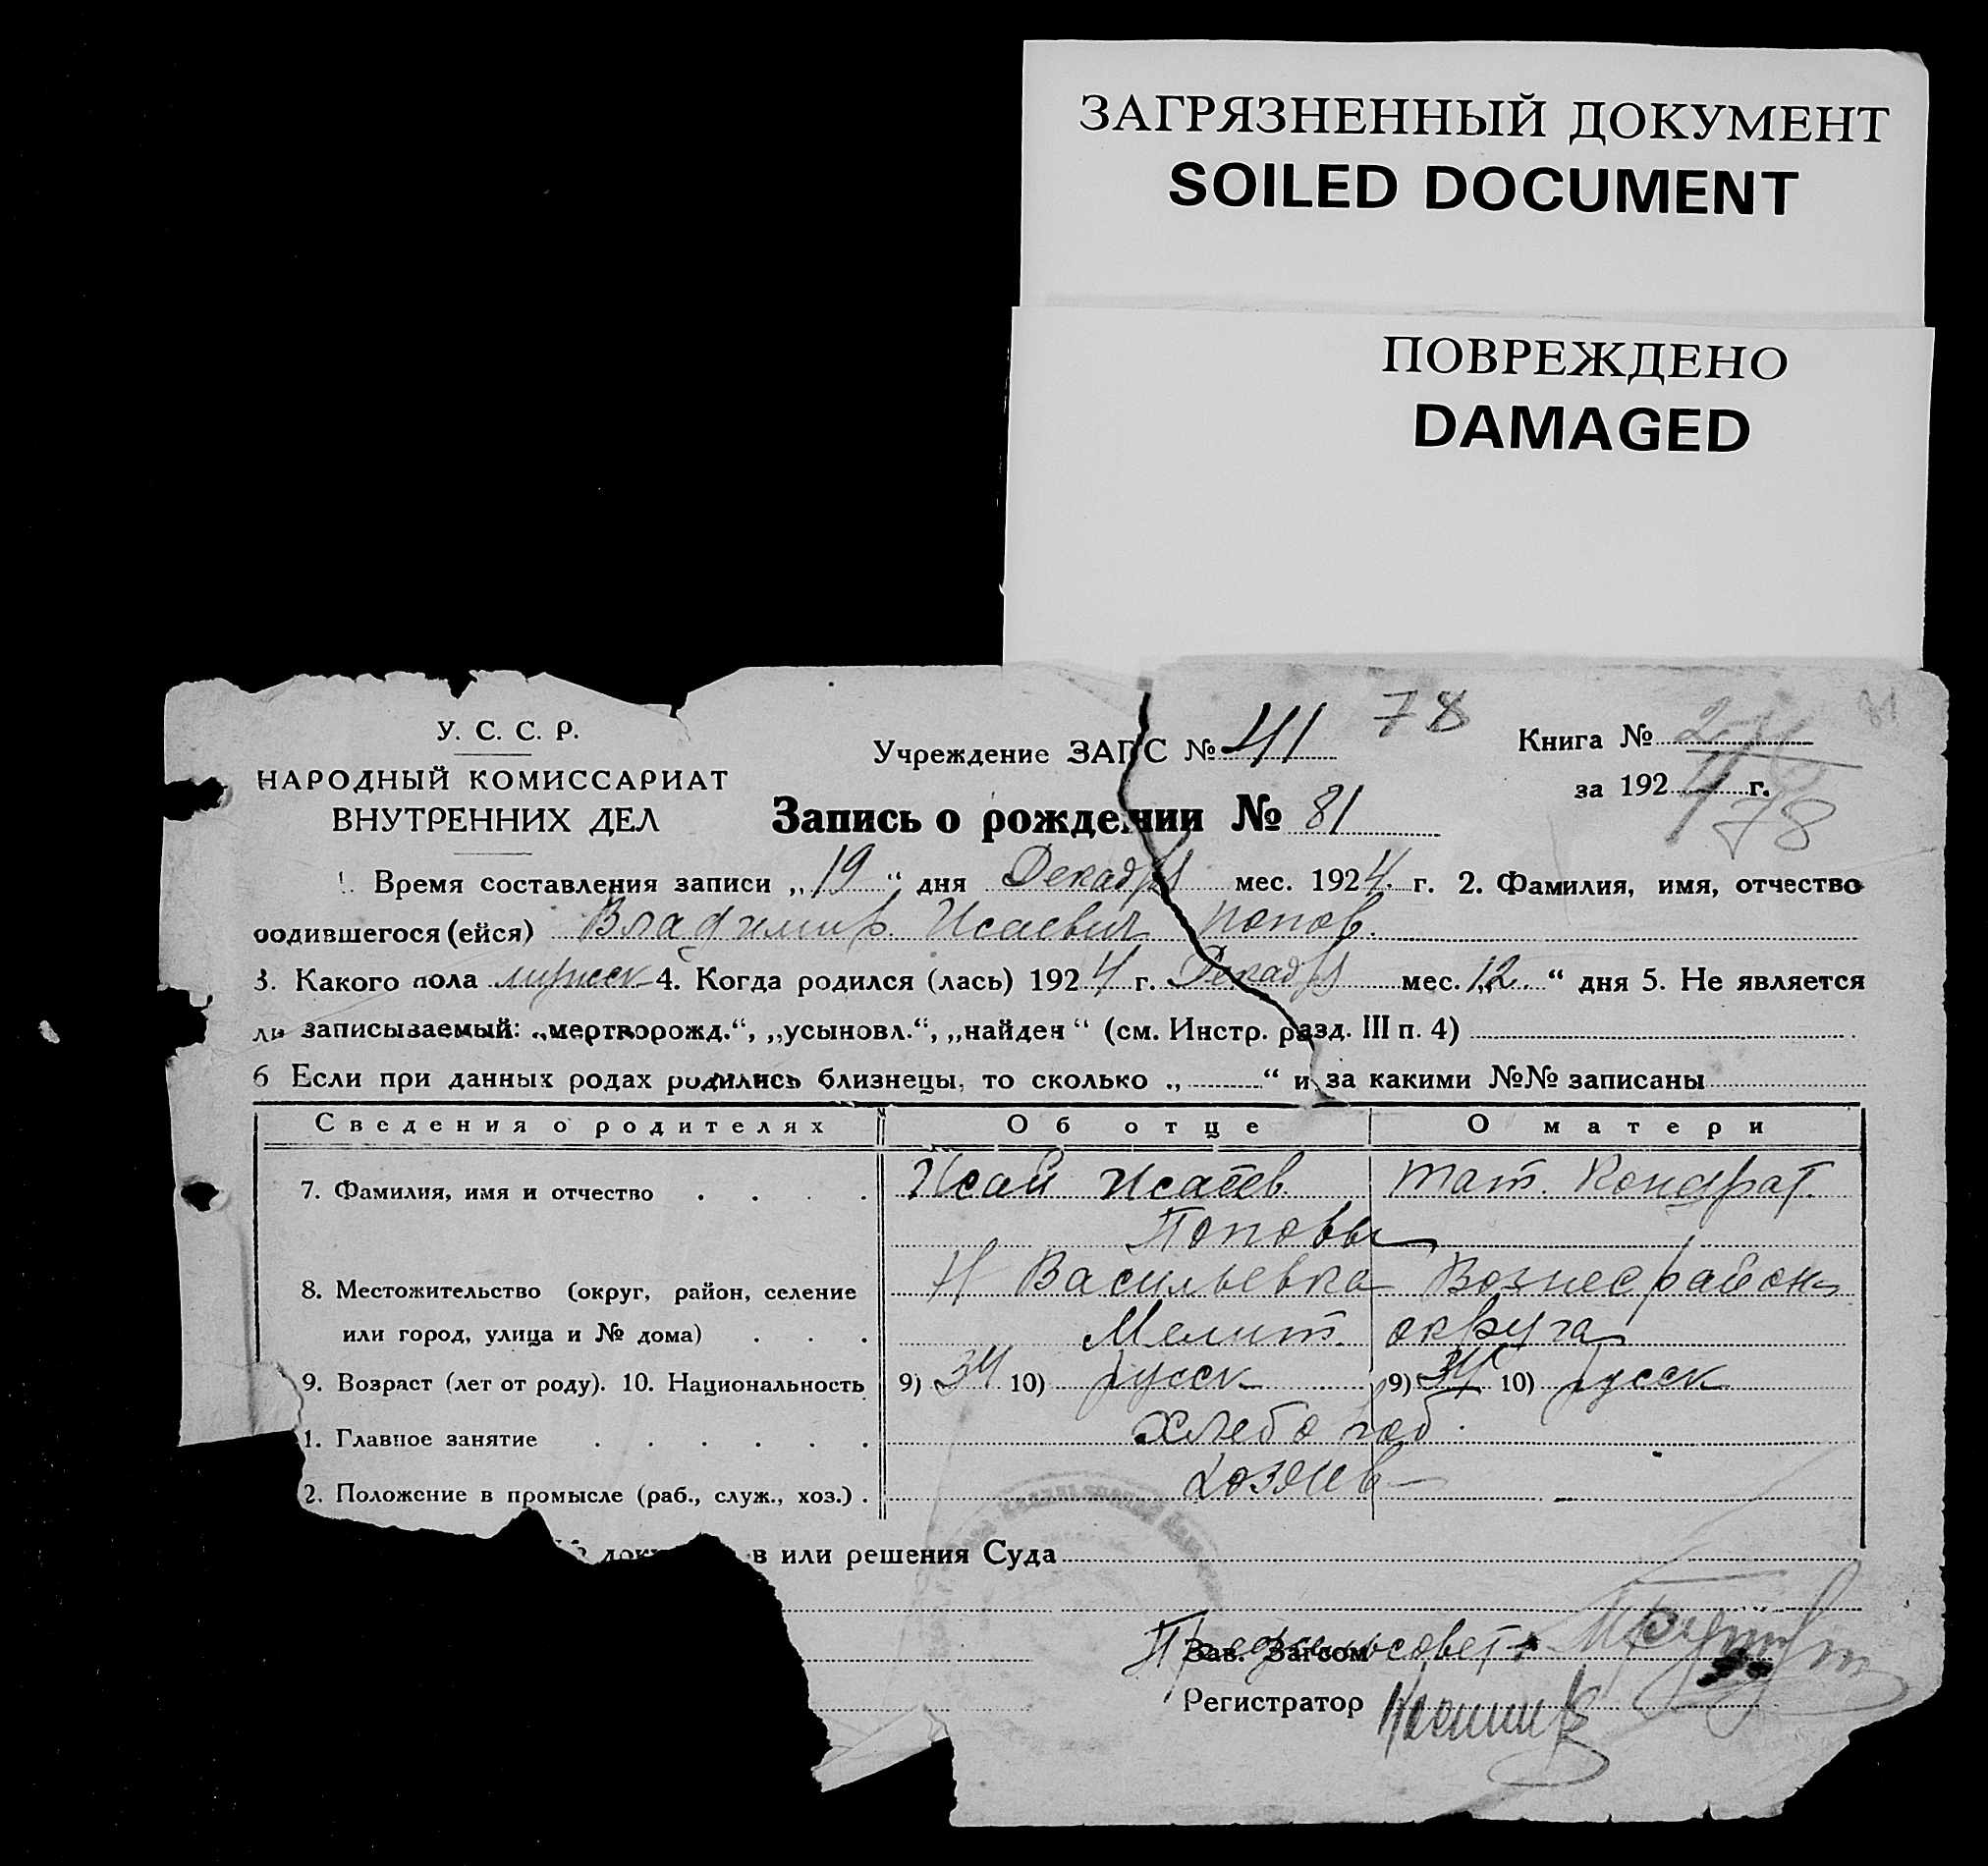 ЗАГРЯЗНЕННЫЙ ДОКУМЕНТ
SOILED DOCUMENT
ПОВРЕЖДЕНО
DAMAGED
У. С. С. Р.
НАРОДНЫЙ КОМИССАРИАТ
ВНУТРЕННИХ ДЕЛ
Учреждение ЗАГС № 41 78
Книга №
за 1924 г.
78
81
Запись о рождении № 81
1. Время составления записи „19“ дня Декабря мес. 1924 г. 2. Фамилия, имя, отчество
родившегося (ейся) Владимир Исаевич Попов.
3. Какого пола мужск 4. Когда родился (лась) 1924 г. Декабря мес. „12“ дня 5. Не является
ли записываемый: „мертворожд.“, „усыновл.“, „найден“ (см. Инстр. разд. III п. 4)
6 Если при данных родах родились близнецы, то сколько „ “ и за какими №№ записаны
Сведения о родителях Об отце О матери
7. Фамилия, имя и отчество Исай Исаев. Тат. Кондрат.
Поповы
8. Местожительство (округ, район, селение Н Васильевка Вознес района
или город, улица и № дома) Мелит. округа
9. Возраст (лет от роду). 10. Национальность 9) 34 10) русск 9) 34 10) русск
1. Главное занятие хлебороб.
2. Положение в промысле (раб., служ., хоз.) хозяев
в или решения Суда
Зав. Загсом
Регистратор